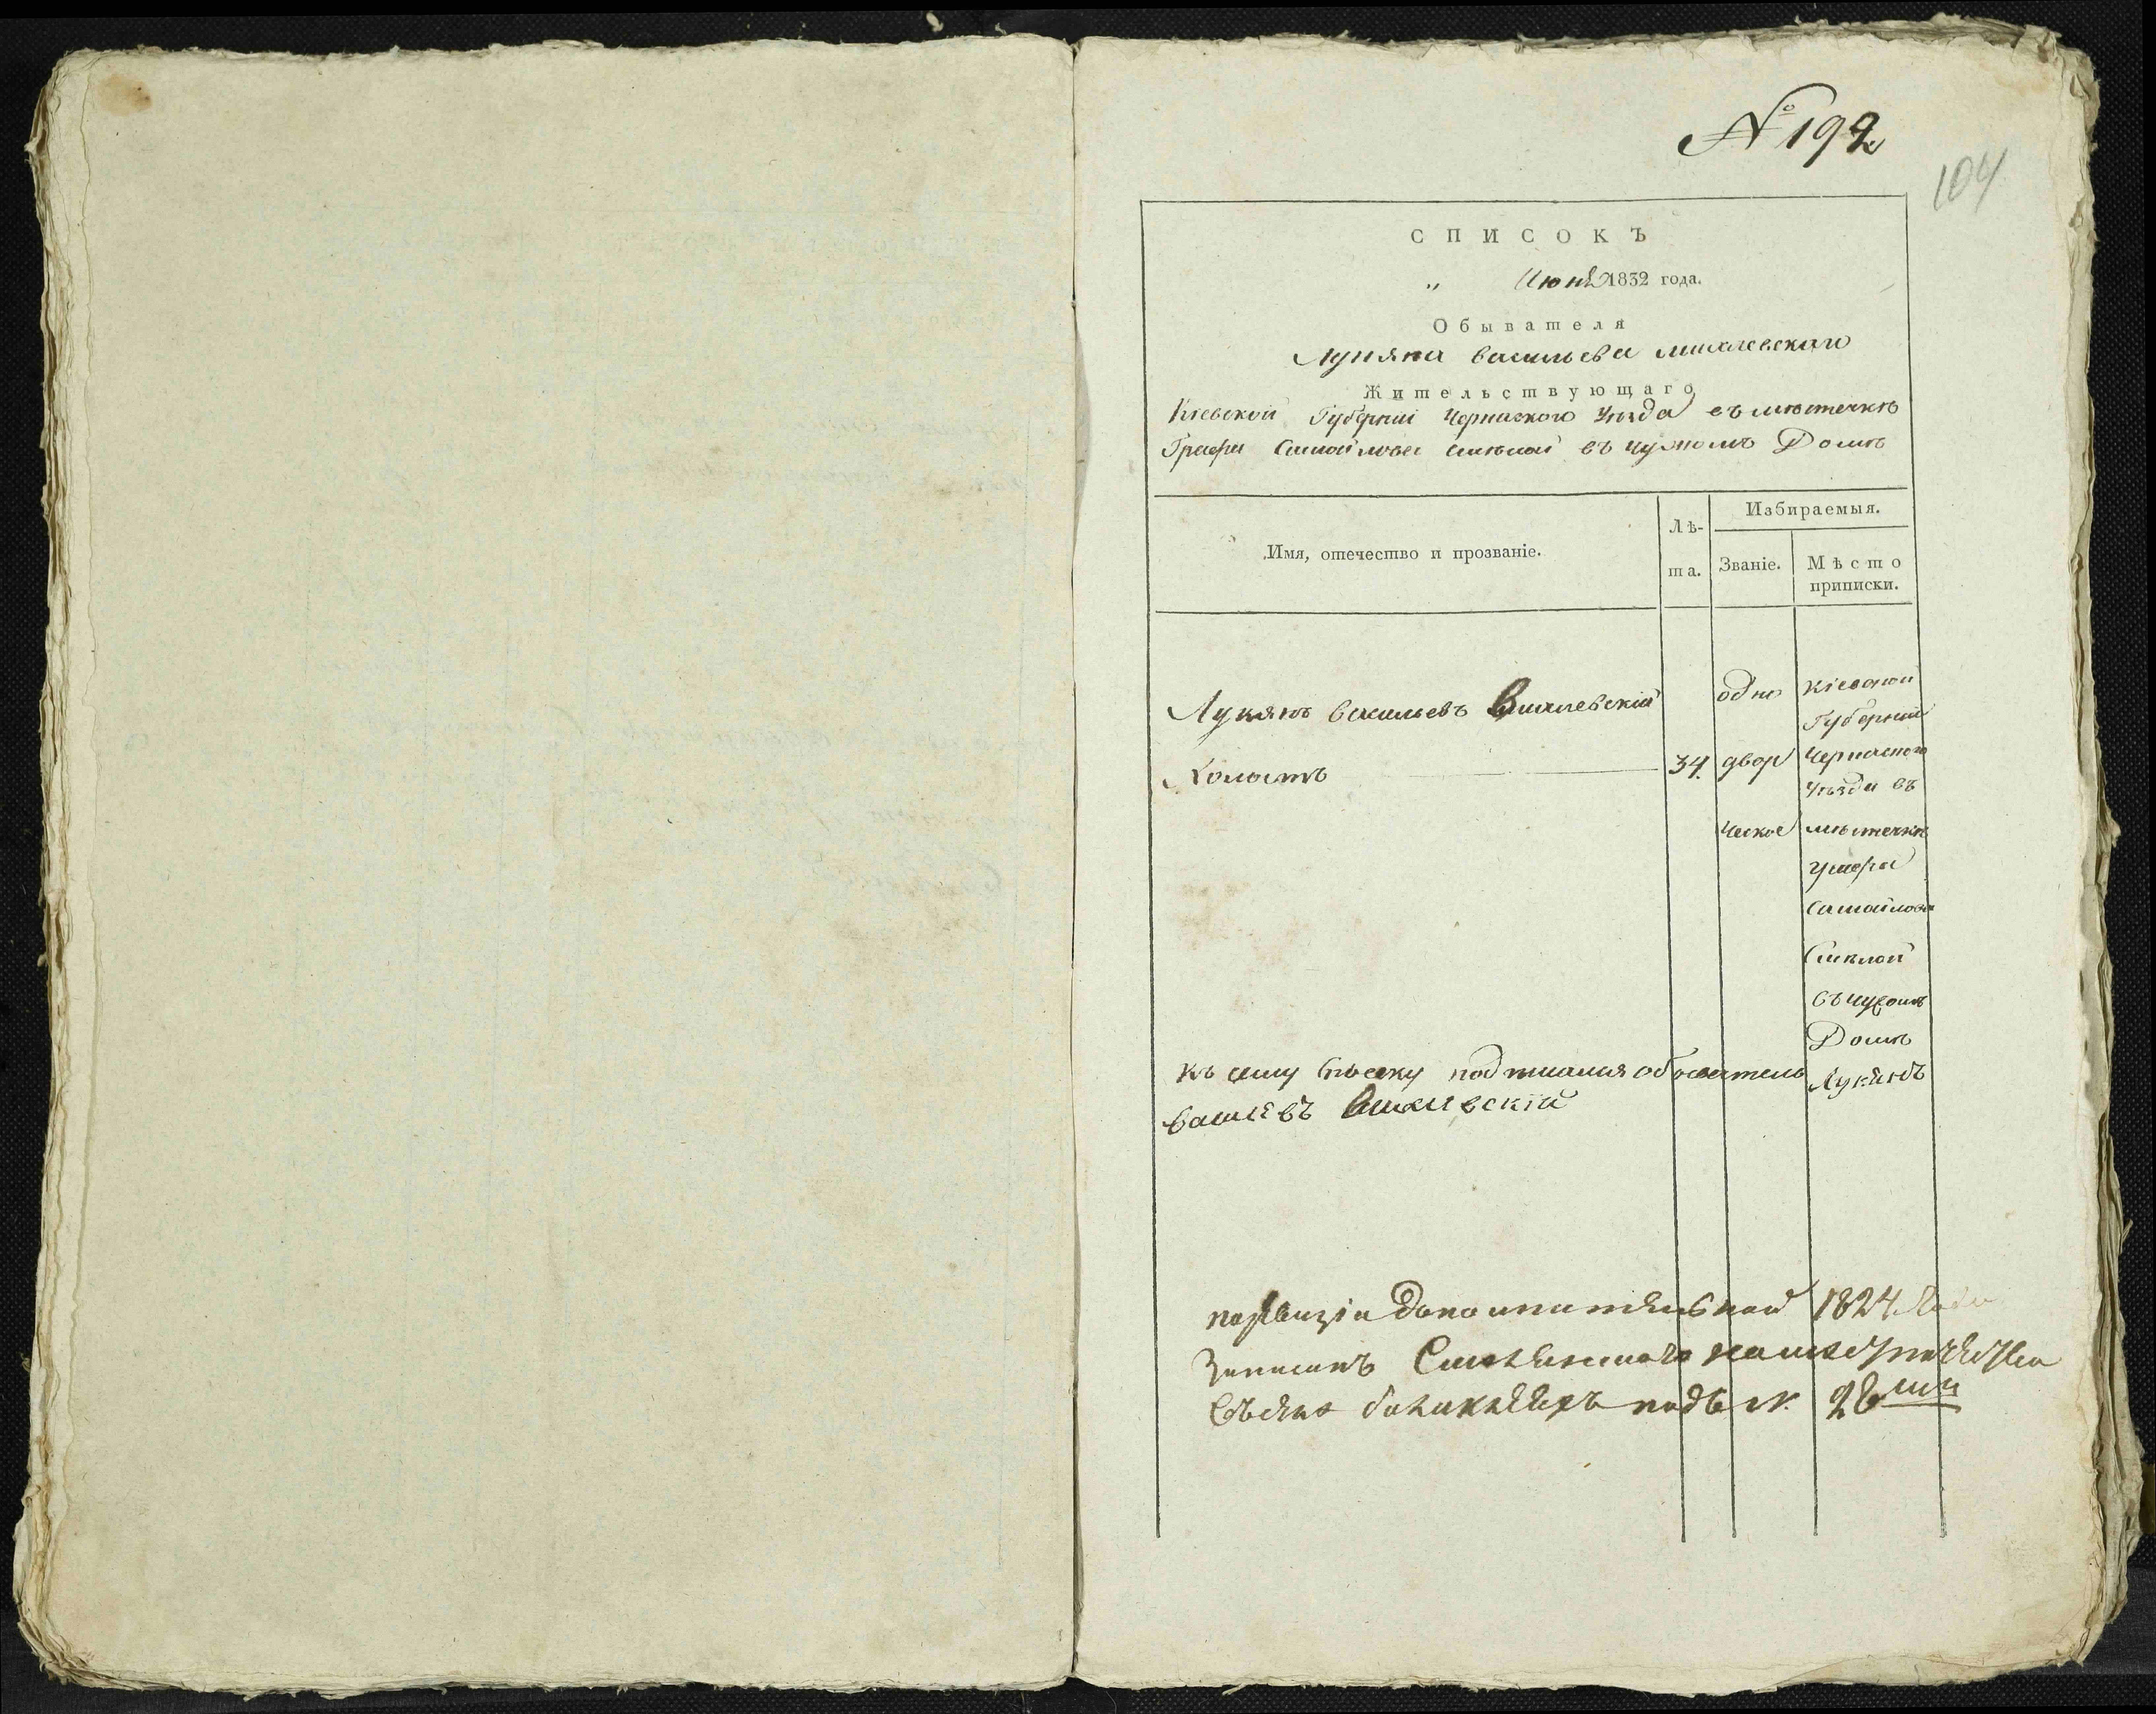 № 192
104
СПИСОКЪ
„ Июня 1832 года.
Обывателя
Лукяна Васильева
Жительствующаго
Кіевской Губерніи Черкаского Уезда въ местечке
Графа Самойлова Смелой въ чужомъ Доме
Имя, отечество и прозваніе.
Лѣ-
та.
Избираемыя.
Званіе.
Мѣсто
приписки.
Лукянъ Васильевъ
Холостъ
34.
одно
двор
ческое
Кіевской
Губерніи
Черкаского
Уезда въ
местечке
Графа
Самойлова
Смелой
въ чужомъ
Доме
Къ сему списку подписался обыватель Лукянъ
по ревизіи дополнительной 1824 года
Записанъ
подъ №. 26